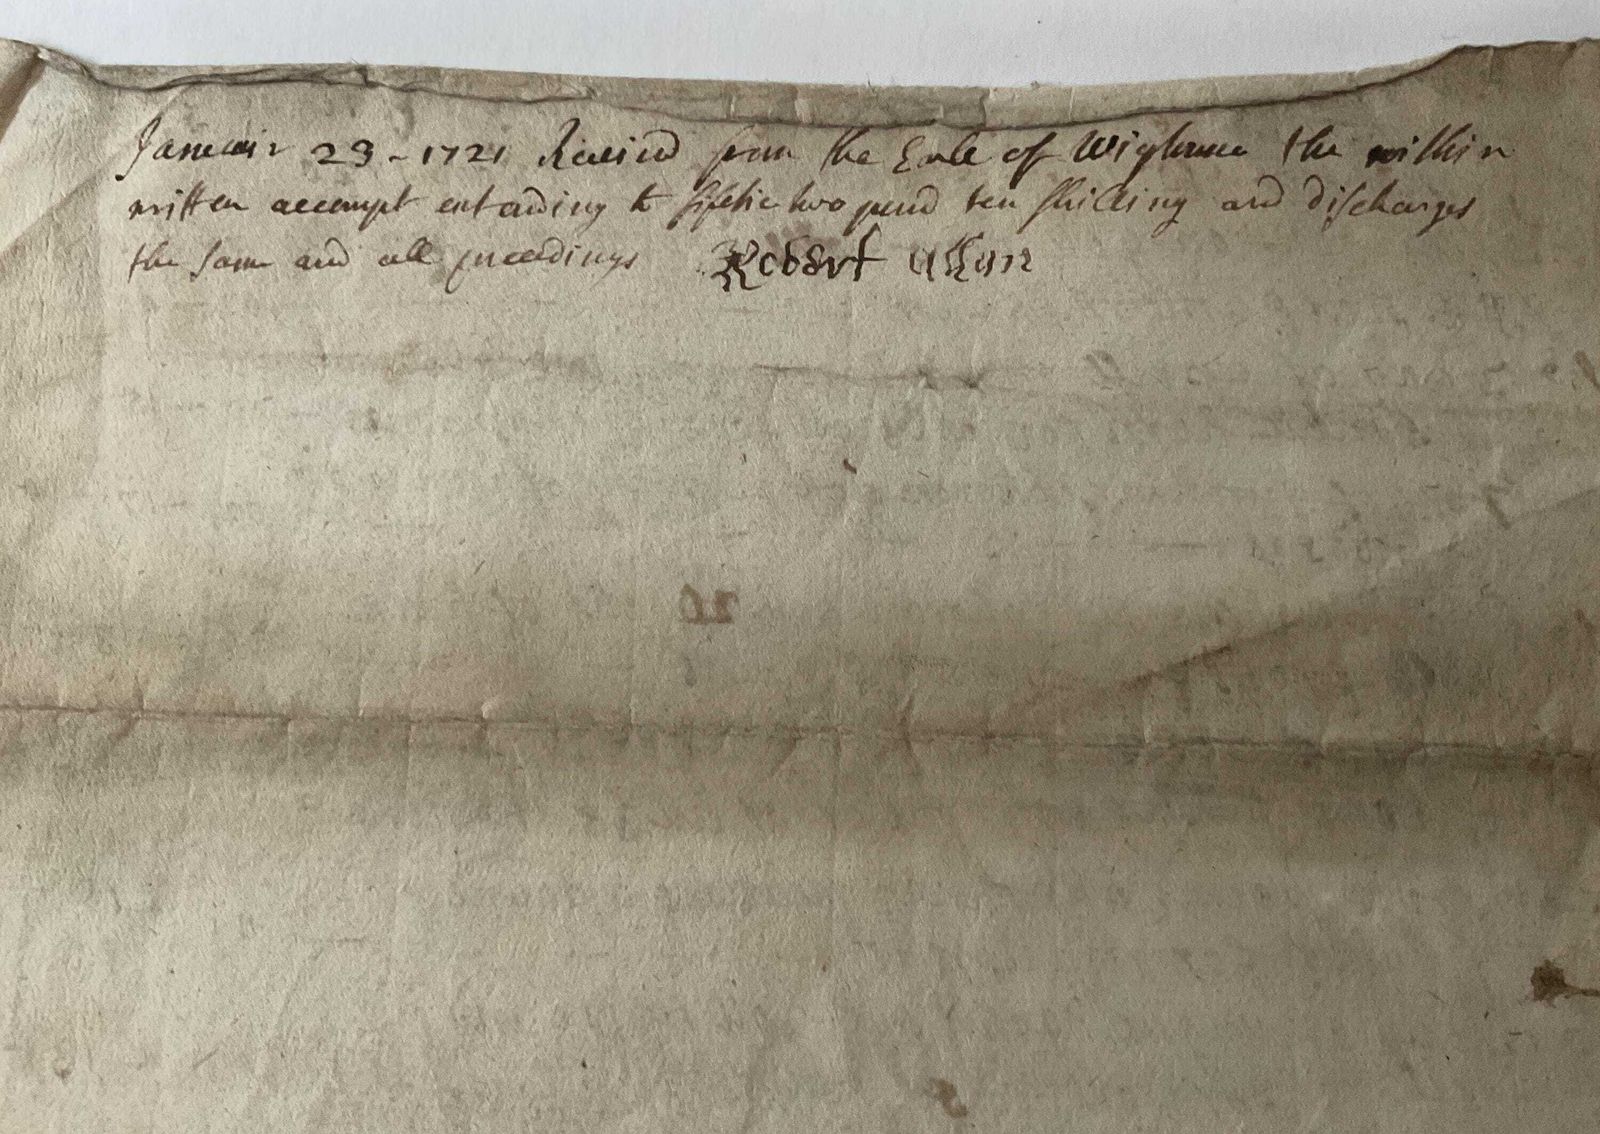 Januair 23 - 1721 Receivd from the Earle of Wigtoune the within
written accompt extending to fiftie two pund ten shilling and discharges
the same and all preceedings Robert
20